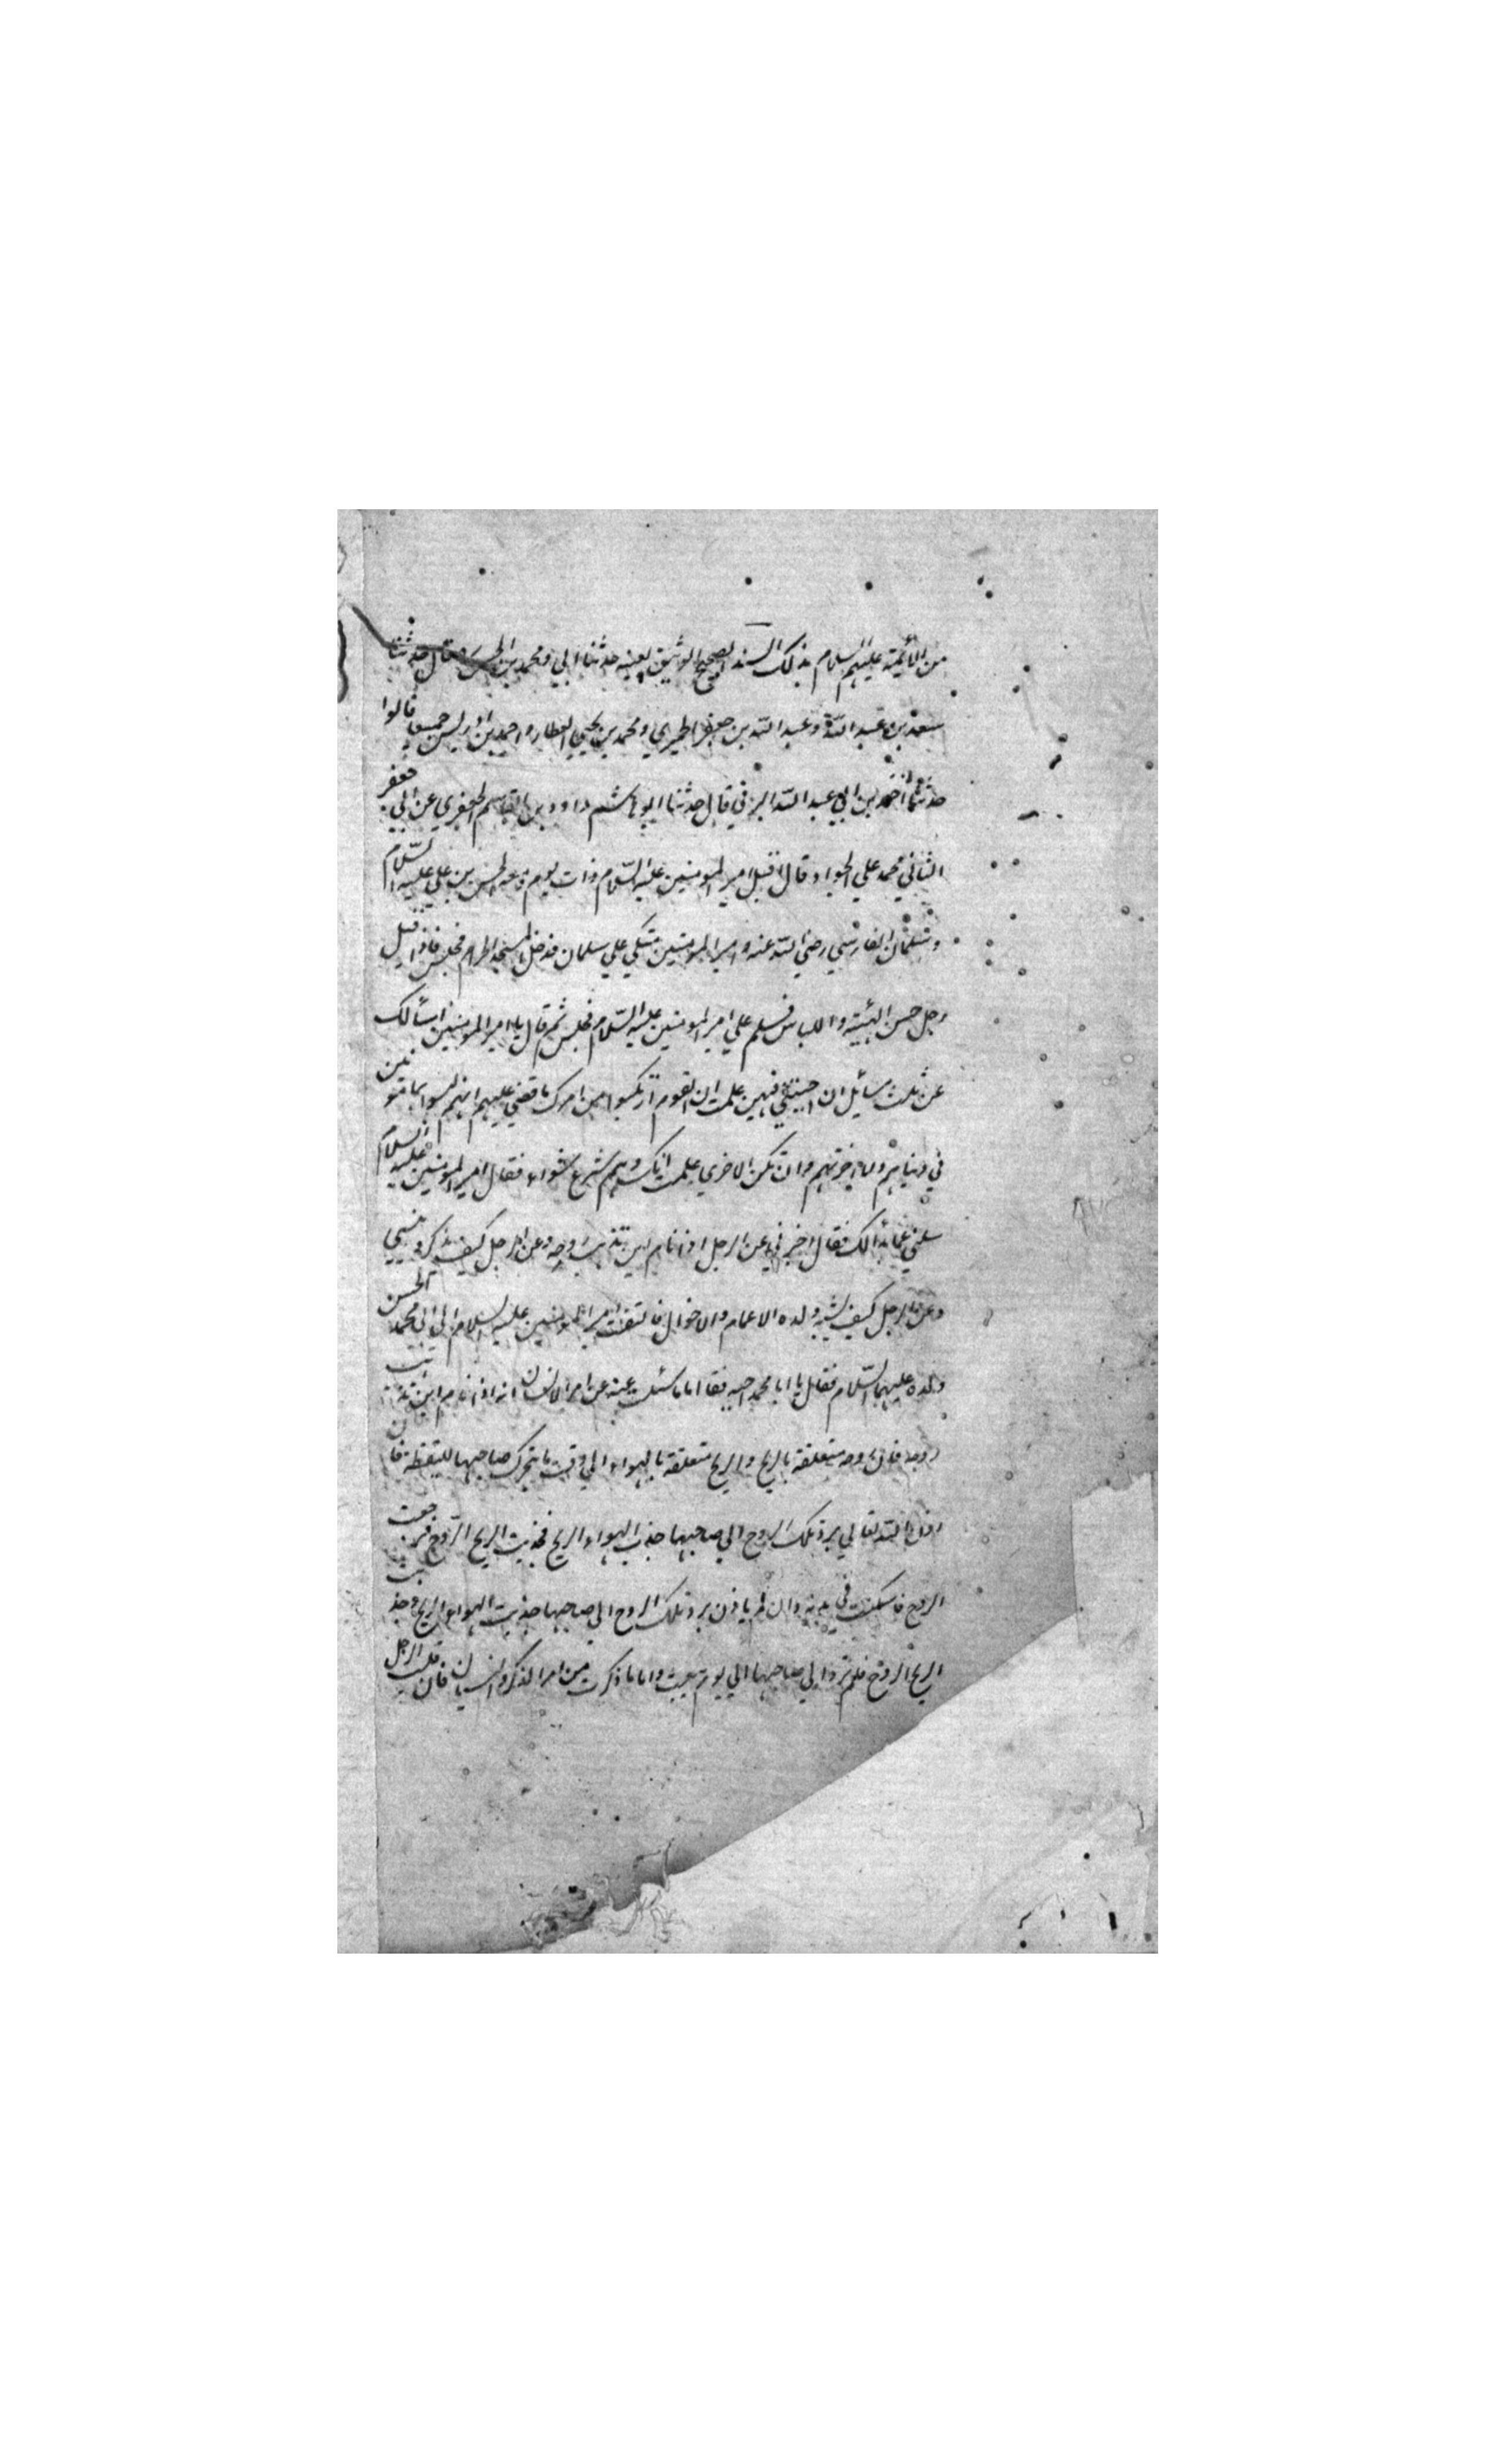 من الأئمة عليهم السلام بذلك السند الصحيح الوثيق بعينه حدثنا ابي ومحمد بن الحسن قال حدثنا
سعد بن عبد الله وعبد الله بن جعفر الحميري ومحمد بن يحيي العطار واحمد بن ادريس جميعا قالوا
حدثنا أحمد بن ابي عبد الله البرقي قال حدثنا ابو هاشم داوود بن القاسم الجعفري عن ابي جعفر
الثاني محمد علي الجواد قال اقبل امير المومنين عليه السّلام ذات يوم ومعه الحسن بن علي عليه السّلام
وسلمان الفارسي رضي الله عنه وامير المومنين متكي علي سلمان فدخل المسجد الحرام فجلس فاذا اقبل
رجل حسن الهيئة واللباس فسلم علي امير المومنين عليه السّلام فجلس ثم قال يا امير المومنين اسألك
عن ثلث مسائل ان اجبتني فيهن علمت ان القوم اركبوا من امرك ما قضي عليهم انهم ليسوا بمامونين
في دنياهم ولا اخرتهم وان تكن الاخري علمت انك وهم شرع سواء فقال امير المومنين عليه السلام
سلني عما بدالك فقال اخبرني عن الرجل اذا نام اين تذهب روحه وعن الرجل كيف يذكر وينسي
وعن الرجل كيف يشبه ولده الاعمام والاخوال فالتفت امير المومنين عليه السلام الي ابي محمد الحسن
ولده عليهما السّلام فقال يا ابا محمد اجبه فقا اما ما سئلت عنه عن امر الانسان انه اذا نام اين تذهب
روحه فان روحه متعلقة بالريح والريح متعلقة بالهواء الي وقت ما يتحرك صاحبها لليقظة فان
اذن الله تعالي برد تلك الروح الي صاحبها جذب الهواء الريح فجذبت الريح الروح فرجعت
الروح فاسكنت في بدنه وان لم ياذن برد تلك الروح الي صاحبها جذبت الهواء الريح وجذبت
الريح الروح فلم ترد الي صاحبها الي يوم يبعث واما ما ذكرت من امر الذكر والنسيان فان قلب الرجل